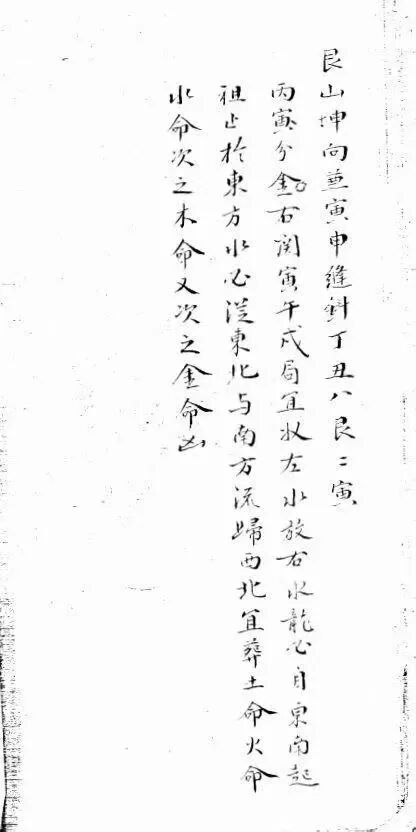 艮山坤向兼寅申縫針丁丑八艮二寅
丙寅分金右関寅午戍局宜收左水放右水龍必自東南起
祖止於東方水必従東北与南方流歸西北宜葬土命火命
水命次之木命又次之金命凶